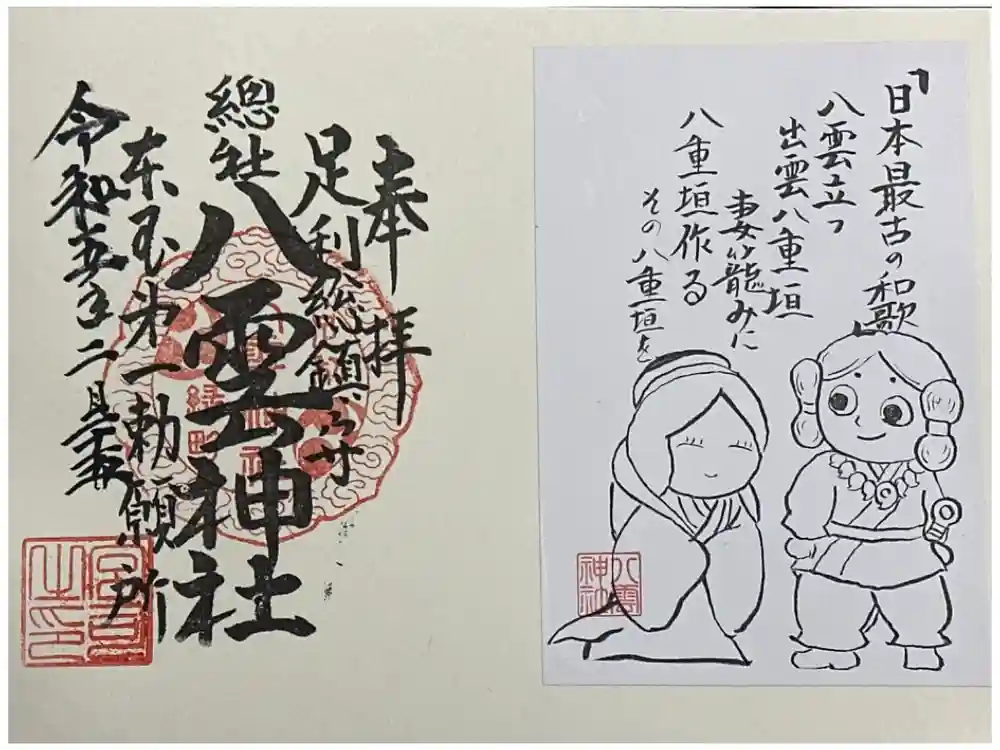 「日本最古の和歌」
八雲立つ
出雲八重垣
妻籠みに
八重垣作る
その八重垣を
八雲
神社
奉拝
足利総鎮守
總社
八雲神社
東国第一勅願所
令和五年二月
宮司
之印